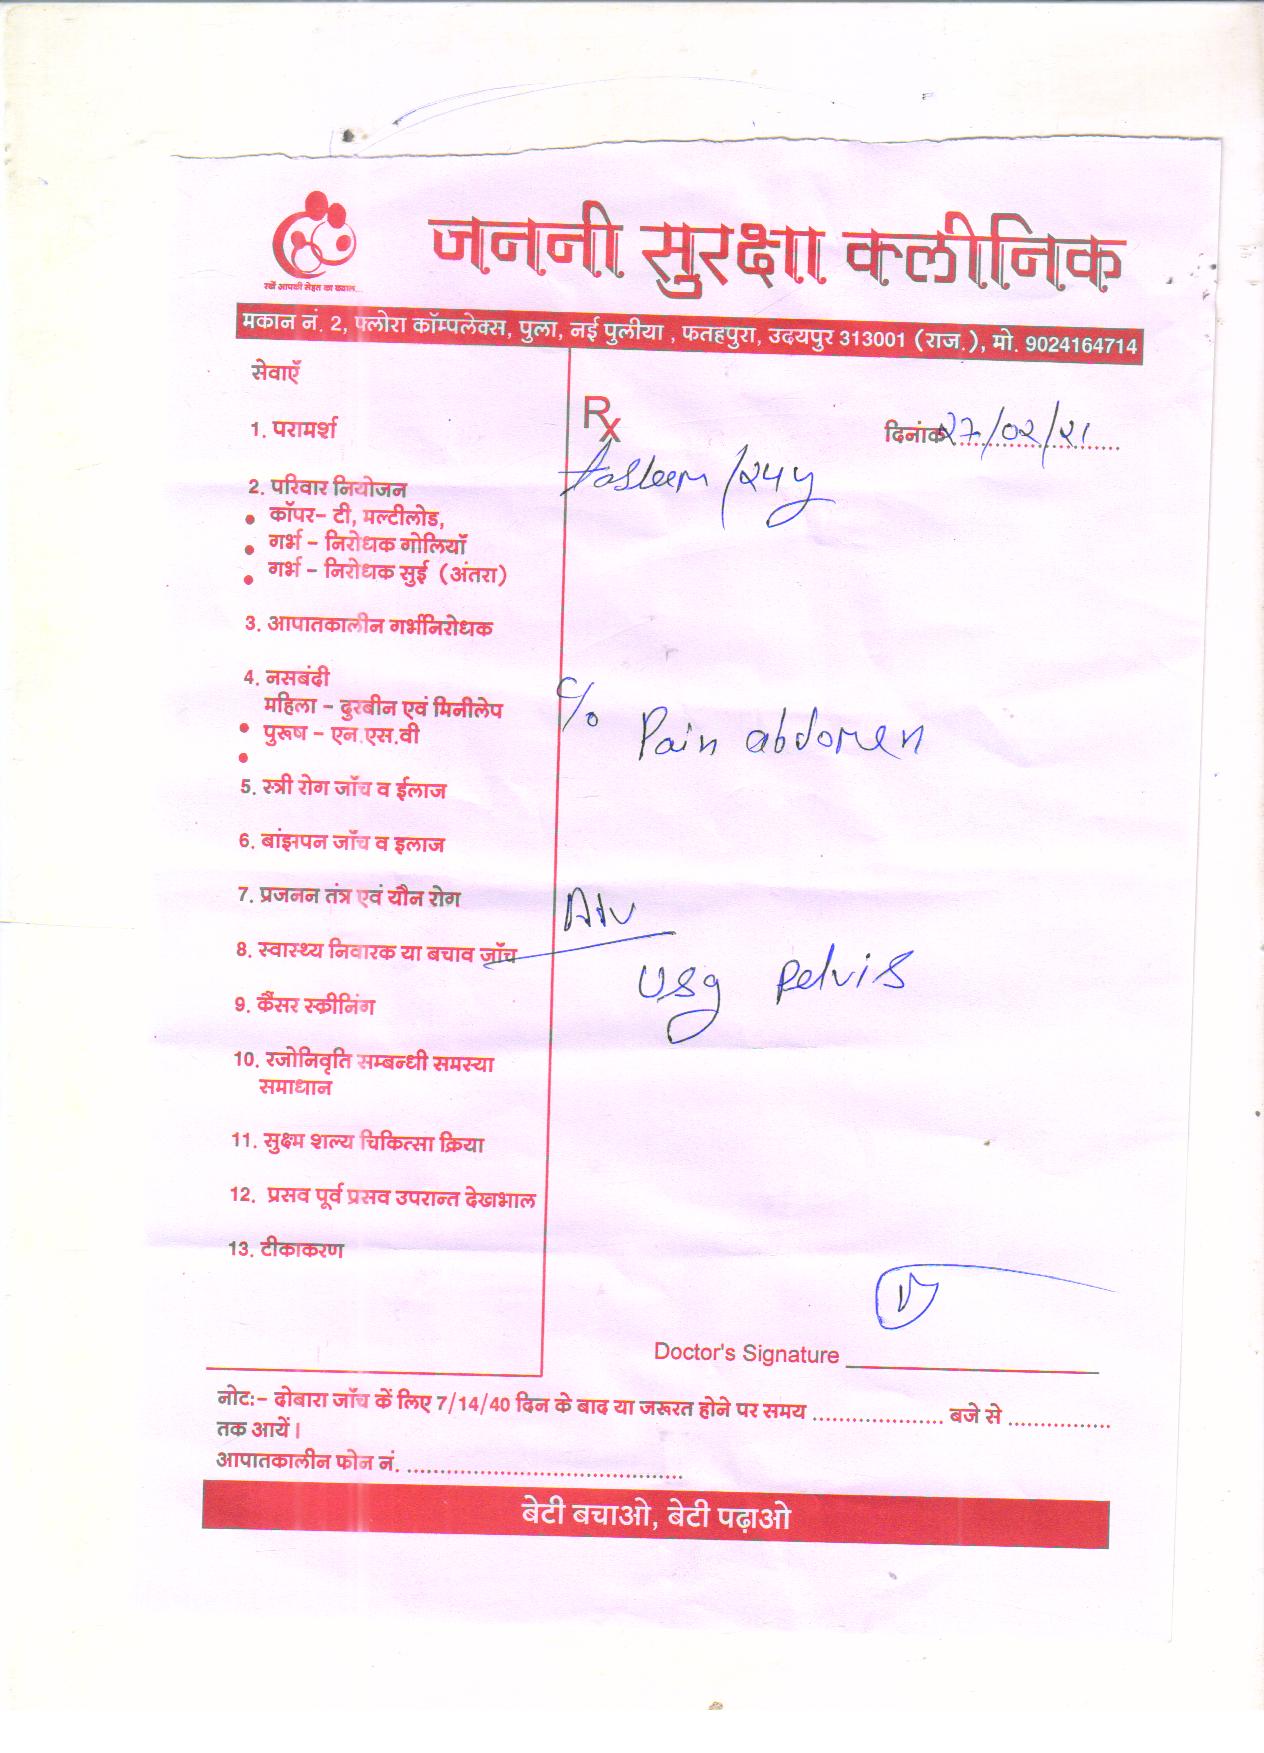 जननी सुरक्षा क्लीनिक
रखें आपकी सेहत का ख्याल...
मकान नं. 2, फ्लोरा कॉम्पलेक्स, पुला, नई पुलीया , फतहपुरा, उदयपुर 313001 (राज.), मो. 9024164714
सेवाएँ
1. परामर्श
2. परिवार नियोजन
• कॉपर- टी, मल्टीलोड,
• गर्भ - निरोधक गोलियाँ
• गर्भ - निरोधक सुई (अंतरा)
3. आपातकालीन गर्भनिरोधक
4. नसबंदी
महिला - दुरबीन एवं मिनीलेप
• पुरूष - एन.एस.वी
•
5. स्त्री रोग जाँच व ईलाज
6. बांझपन जाँच व इलाज
7. प्रजनन तंत्र एवं यौन रोग
8. स्वास्थ्य निवारक या बचाव जाँच
9. कैंसर स्क्रीनिंग
10. रजोनिवृति सम्बन्धी समस्या
समाधान
11. सुक्ष्म शल्य चिकित्सा क्रिया
12. प्रसव पूर्व प्रसव उपरान्त देखभाल
13. टीकाकरण
Rx
दिनांक 27/02/21
Tasleem /24y
c/o Pain abdomen
Adv
USg Pelvis
Doctor's Signature
नोटः- दोबारा जाँच कें लिए 7/14/40 दिन के बाद या जरूरत होने पर समय .................... बजे से ................
तक आयें।
आपातकालीन फोन नं. ..........................................
बेटी बचाओ, बेटी पढ़ाओ